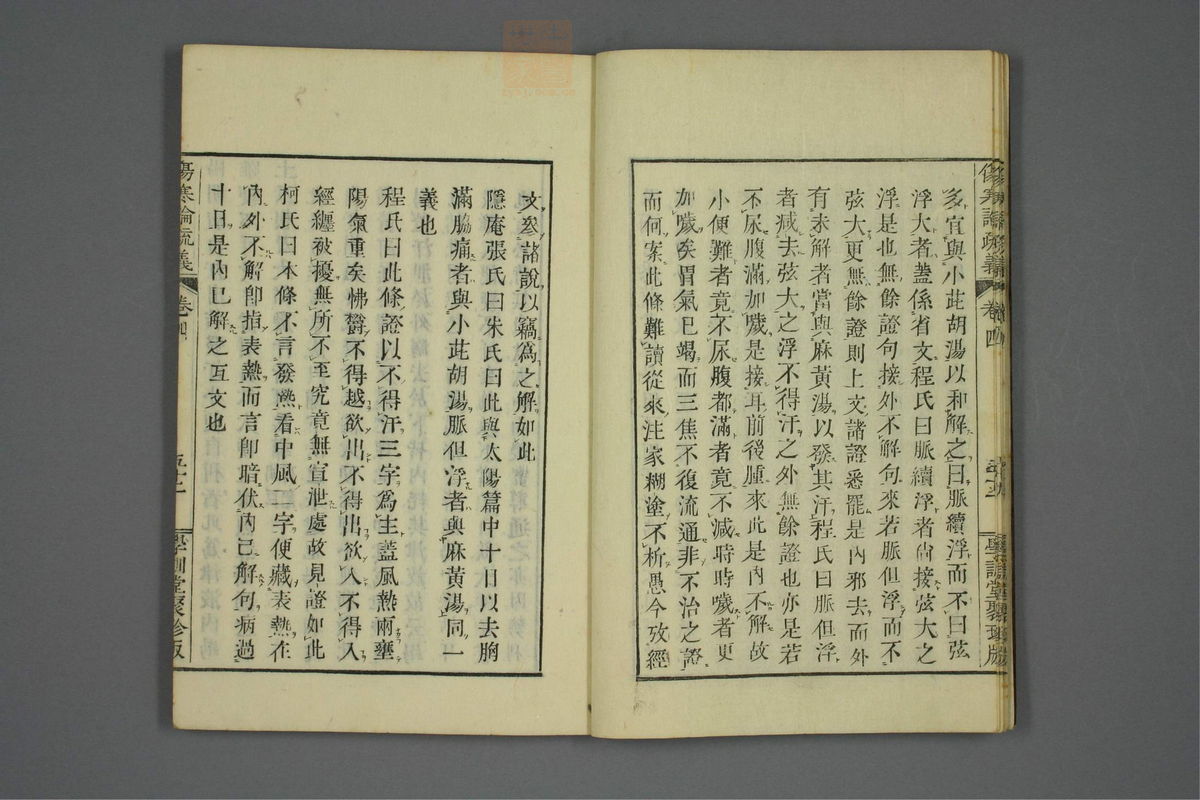 傷寒論疏義 卷四 五十二 學訓堂聚珍版
多宜與小茈胡湯以和解之曰脈續浮而不曰弦
浮大者蓋係省文程氏曰脈續浮者尙接弦大之
浮是也無餘證句接外不解句來若脈但浮而不
弦大更無餘證則上文諸證悉罷是內邪去而外
有未解者當與麻黃湯以發其汗程氏曰脈但浮
者減去弦大之浮不得汗之外無餘證也亦是若
不尿腹滿加噦是接耳前後腫來此是內不解故
小便難者竟不尿腹都滿者竟不減時時噦者更
加噦矣胃氣已竭而三焦不復流通非不治之證
而何案此條難讀從來注家糊塗不析愚今攷經
文參諸說以竊爲之解如此
隱庵張氏曰朱氏曰此與太陽篇中十日以去胸
滿脇痛者與小茈胡湯脈但浮者與麻黃湯同一
義也
程氏曰此條證以不得汗三字爲主蓋風熱兩壅
陽氣重矣怫鬱不得越欲出不得出欲入不得入
經纏被擾無所不至究竟無宣泄處故見證如此
柯氏曰本條不言發熱看中風二字便藏表熱在
內外不解卽指表熱而言卽暗伏內已解句病過
十日是內已解之互文也
傷寒論疏義 卷四 五十二 學訓堂聚珍版